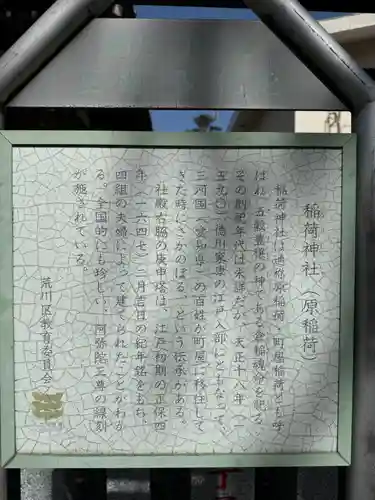 稲荷神社（原稲荷）
稲荷神社は通称原稲荷・町屋稲荷とも呼
ばれ、五穀豊穣の神である倉稲魂命を祀る。
その創祀年代は未詳だが、天正十八年（一
五九〇）徳川家康の江戸入部にともなって、
三河国（愛知県）の百姓が町屋に移住して
きた時にさかのぼる、という伝承がある。
社殿右脇の庚申塔は、江戸初期の正保四
年（一六四七）二月吉日の紀年銘をもち、
四組の夫婦によって建てられたことがわか
る。全国的にも珍しい、阿弥陀三尊の線刻
が施されている。
荒川区教育委員会